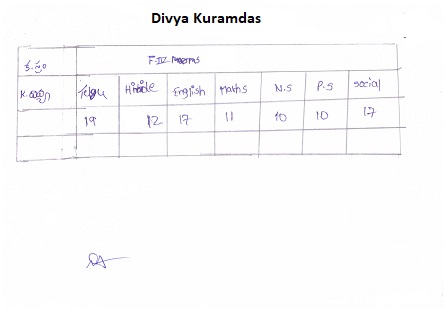 Divya Kuramdas
క్ర.సం
K. దివ్య Telgu Hindde English Maths N.S P.S social
19 12 17 11 10 10 17